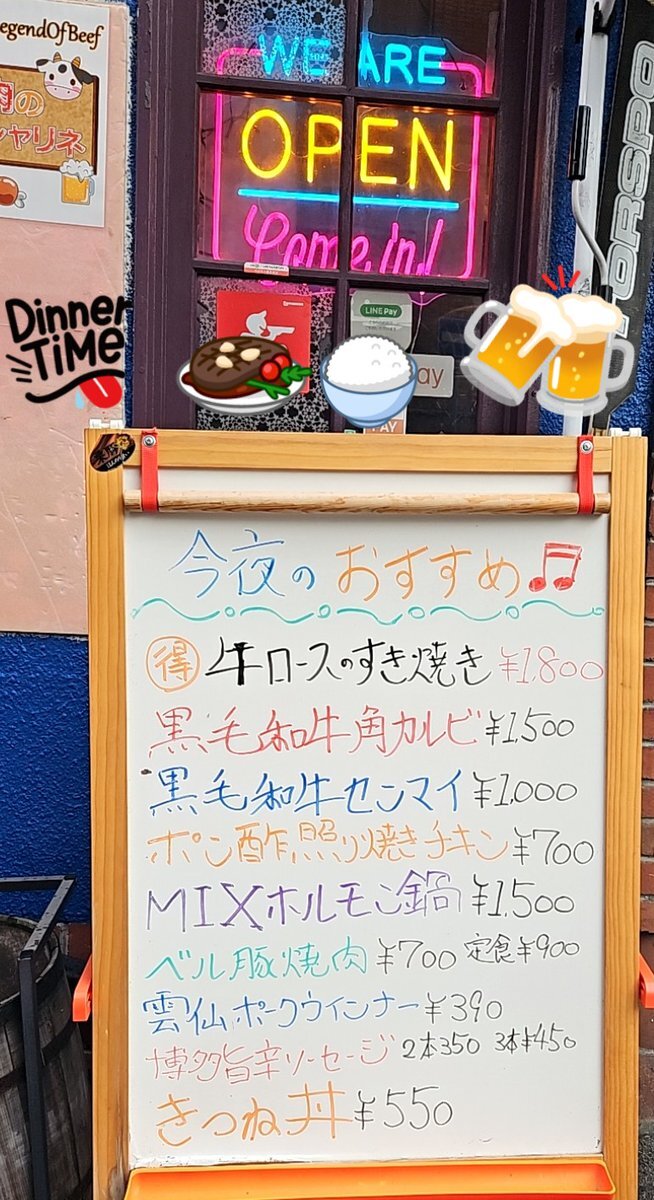 LegendOfBeef
肉の
シャリネ
WE ARE
OPEN
Come in!
FORSPO
LINE Pay
Pay
PAY
Dinner
TiME
今夜のおすすめ
得 牛ロースのすき焼き ¥1,800
黒毛和牛角カルビ ¥1,500
黒毛和牛センマイ ¥1,000
ポン酢照り焼きチキン ¥700
MIXホルモン鍋 ¥1,500
ベル豚焼肉 ¥700 定食¥900
雲仙ポークウインナー ¥390
博多旨辛ソーセージ 2本350 3本¥450
きつね丼 ¥550